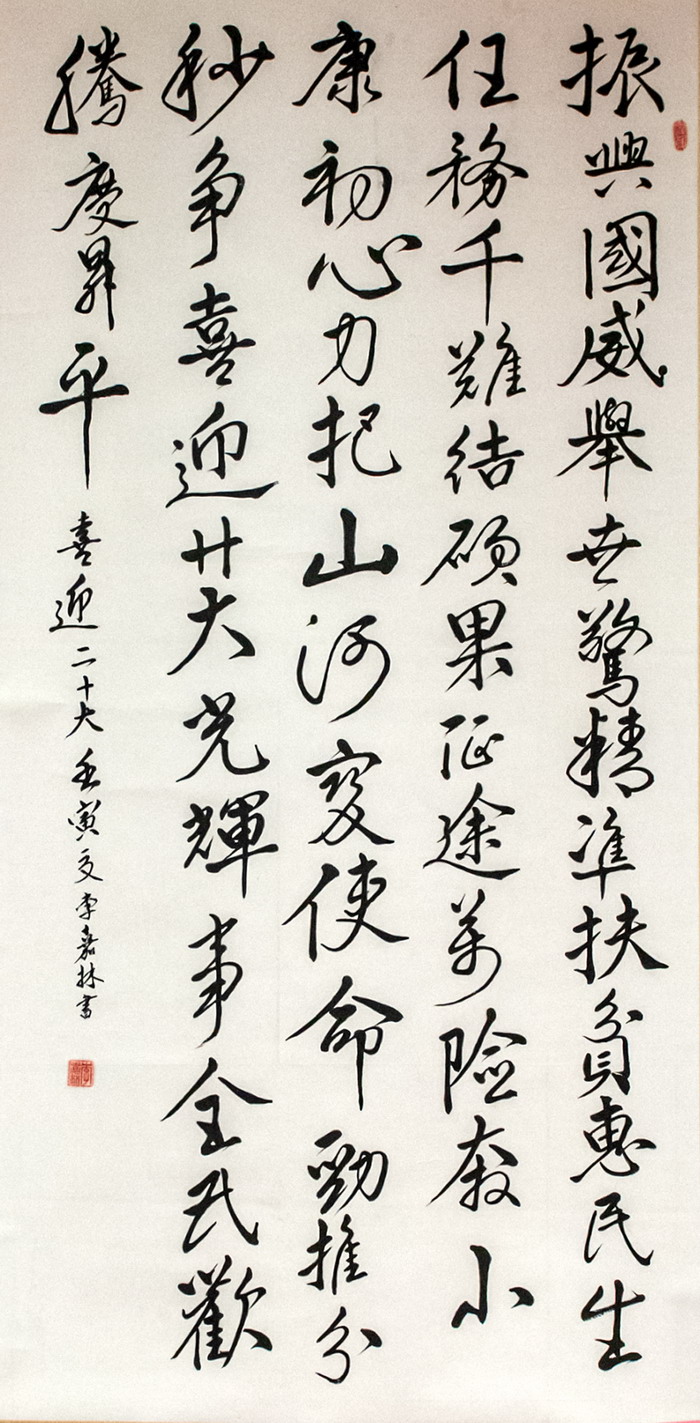 振興國威舉世驚精準扶貧惠民生
任務千難結碩果征途萬險奔小
康初心力把山河變使命勁推分
秒争喜迎廿大光輝事全民歡
騰慶昇平
喜迎二十大壬寅夏李嘉林書